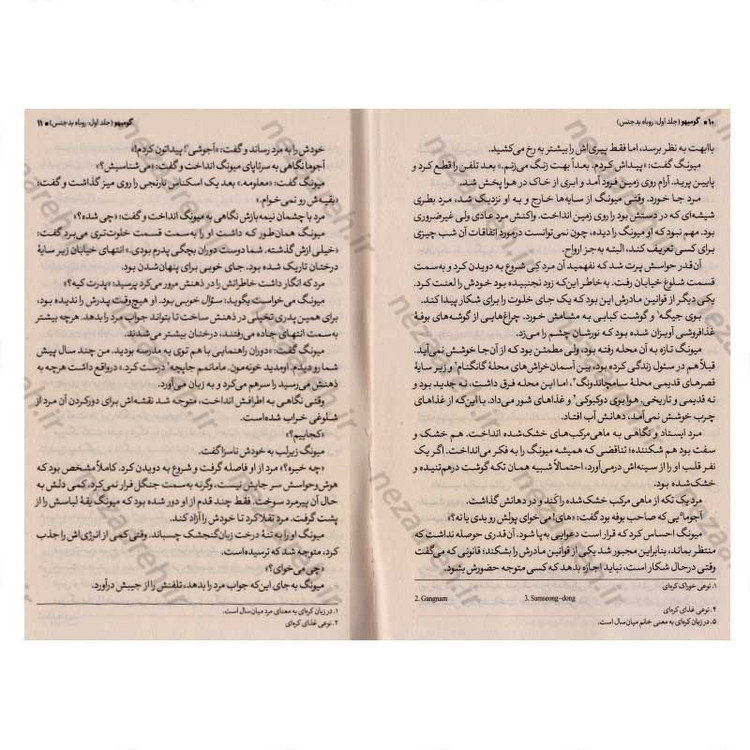 ۱۰ ■ گومیهو (جلد اول: روباه بدجنس)
باابهت به نظر برسد، اما فقط پیری‌اش را بیشتر به رخ می‌کشید.
میونگ گفت: «پیداش کردم. بعداً بهت زنگ می‌زنم.» بعد تلفن را قطع کرد و
پایین پرید. آرام روی زمین فرود آمد و ابری از خاک در هوا پخش شد.
مرد جا خورد. وقتی میونگ از سایه‌ها خارج و به او نزدیک شد، مرد بطری
شیشه‌ای که در دستش بود را روی زمین انداخت. واکنش مرد عادی ولی غیرضروری
بود. مهم نبود که او میونگ را دیده، چون نمی‌توانست درمورد اتفاقات آن شب چیزی
برای کسی تعریف کند، البته به‌جز ارواح.
آن‌قدر حواسش پرت شد که نفهمید آن مرد کِی شروع به دویدن کرد و به‌سمت
قسمت شلوغ خیابان رفت. به خاطر این‌که زود نجنبیده بود خودش را لعنت کرد.
یکی دیگر از قوانین مادرش این بود که یک جای خلوت را برای شکار پیدا کند.
بوی جیگه¹ و گوشت کبابی به مشامش خورد. چراغ‌هایی از گوشه‌های بوفهٔ
غذافروشی آویزان شده بود که نورشان چشم را می‌زد.
میونگ تازه به آن محله رفته بود، ولی مطمئن بود که از آن‌جا خوشش نمی‌آید.
قبلاً هم در سئول زندگی کرده بود، بین آسمان‌خراش‌های محلهٔ گانگنام² و زیر سایهٔ
قصرهای قدیمی محلهٔ سامچئاندرنگ³، اما این محله فرق داشت، نه جدید بود و
نه قدیمی و تاریخی. هوا بوی دوکبوکی⁴ و غذاهای شور می‌داد. با این‌که از غذاهای
چرب خوشش نمی‌آمد، دهانش آب افتاد.
مرد ایستاد و نگاهی به ماهی‌مرکب‌های خشک‌شده انداخت. هم خشک و
سفت بود هم شکننده؛ تناقضی که همیشه میونگ را به فکر می‌انداخت. اگر یک
نفر قلب او را از سینه‌اش درمی‌آورد، احتمالاً شبیه همان تکه گوشت درهم‌تنیده و
خشک‌شده بود.
مرد یک تکه از ماهی مرکب خشک‌شده را کند و در دهانش گذاشت.
آجوما⁵یی که صاحب بوفه بود گفت: «های! می‌خوای پولش رو بدی یا نه؟»
میونگ احساس کرد که قرار است دعوایی به پا شود. آن‌قدری حوصله نداشت که
منتظر بماند، بنابراین مجبور شد یکی از قوانین مادرش را بشکند؛ قانونی که می‌گفت
وقتی درحال شکار است، نباید اجازه بدهد که کسی متوجه حضورش بشود.
۱. نوعی خوراک کره‌ای
2. Gangnam 3. Samseong-dong
۴. نوعی غذای کره‌ای
۵. در زبان کره‌ای به معنی خانم میان‌سال است.
گومیهو (جلد اول: روباه بدجنس) ■ ۱۱
خودش را به مرد رساند و گفت: «آجوشی¹! پیداتون کردم!»
آجوما نگاهی به سرتاپای میونگ انداخت و گفت: «می‌شناسیش؟»
میونگ گفت: «معلومه.» بعد یک اسکناس نارنجی را روی میز گذاشت و گفت:
«بقیه‌ش رو نمی‌خوام.»
مرد با چشمان نیمه‌بازش نگاهی به میونگ انداخت و گفت: «چی شده؟»
میونگ همان‌طور که داشت او را به‌سمت قسمت خلوت‌تری می‌برد گفت:
«خیلی ازش گذشته. شما دوست دوران بچگی پدرم بودی.» انتهای خیابان زیر سایهٔ
درختان تاریک شده بود. جای خوبی برای پنهان‌شدن بود.
مرد که انگار داشت خاطراتش را در ذهنش مرور می‌کرد پرسید: «پدرت کیه؟»
میونگ می‌خواست بگوید: سؤال خوبی بود. او هیچ‌وقت پدرش را ندیده بود،
برای همین پدری تخیلی در ذهنش ساخت تا بتواند جواب مرد را بدهد. هرچه بیشتر
به‌سمت انتهای جاده می‌رفتند، درختان بیشتر می‌شدند.
میونگ گفت: «دوران راهنمایی با هم توی یه مدرسه بودید. من چند سال پیش
شما رو دیدم. اومدید خونه‌مون. مامانمم جاپچه² درست کرد.» درواقع داشت هرچه به
ذهنش می‌رسید را سرهم می‌کرد و به زبان می‌آورد.
وقتی نگاهی به اطرافش انداخت، متوجه شد نقشه‌اش برای دورکردن آن مرد از
شلوغی خراب شده‌است.
«کجاییم؟»
میونگ زیرلب به خودش ناسزا گفت.
«چه خبره؟» مرد از او فاصله گرفت و شروع به دویدن کرد. کاملاً مشخص بود که
هوش‌وحواسش سر جایش نیست، وگرنه به‌سمت جنگل فرار نمی‌کرد. کمی دلش به
حال آن پیرمرد سوخت. فقط چند قدم از او دور شده بود که میونگ یقهٔ لباسش را از
پشت گرفت. مرد تقلا کرد تا خودش را آزاد کند.
میونگ او را به تنهٔ درخت زبان‌گنجشک چسباند. وقتی کمی از انرژی‌اش را جذب
کرد، متوجه شد که ترسیده‌است.
«چی می‌خوای؟»
میونگ به جای این‌که جواب مرد را بدهد، تلفنش را از جیبش درآورد.
۱. در زبان کره‌ای به معنای مرد میان‌سال است.
۲. نوعی غذای کره‌ای
nezafreh.ir